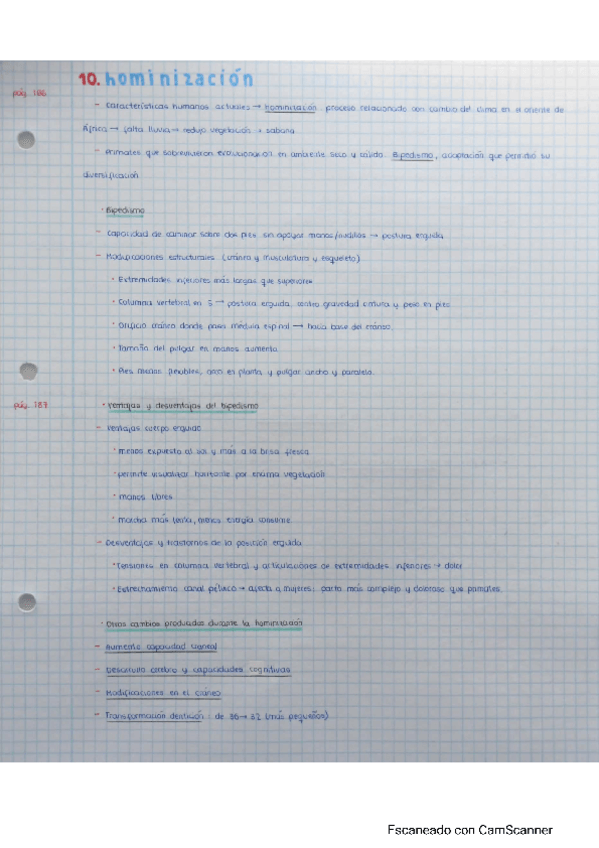 10. hominización
pág. 186
- Características humanas actuales → hominización, proceso relacionado con cambio del clima en el oriente de
África → falta lluvia → redujo vegetación → sabana
- Primates que sobrevivieron evolucionaron en ambiente seco y cálido. Bipedismo, adaptación que permitió su
diversificación
· Bipedismo
- Capacidad de caminar sobre dos pies sin apoyar manos/nudillos → postura erguida
- Modificaciones estructurales (cráneo y musculatura y esqueleto)
· Extremidades inferiores más largas que superiores
· Columna vertebral en S → postura erguida, centro gravedad cintura y peso en pies
· Orificio craneo donde pasa médula espinal → hacia base del cráneo.
· Tamaño del pulgar en manos aumento
· Pies menos flexibles, arco en planta y pulgar ancho y paralelo.
pág. 187
· Ventajas y desventajas del bipedismo
- Ventajas cuerpo erguido
· menos expuesto al sol y más a la brisa fresca
· permite visualizar horizonte por encima vegetación
· manos libres
· marcha más lenta, menos energía consume
- Desventajas y trastornos de la posición erguida
· Tensiones en columna vertebral y articulaciones de extremidades inferiores → dolor
· Estrechamiento canal pélvico → afecta a mujeres: parto más complejo y doloroso que primates
· Otros cambios producidos durante la hominización
- Aumento capacidad craneal
- Desarrollo cerebro y capacidades cognitivas
- Modificaciones en el cráneo
- Transformación dentición: de 36 → 32 (más pequeños)
Escaneado con CamScanner